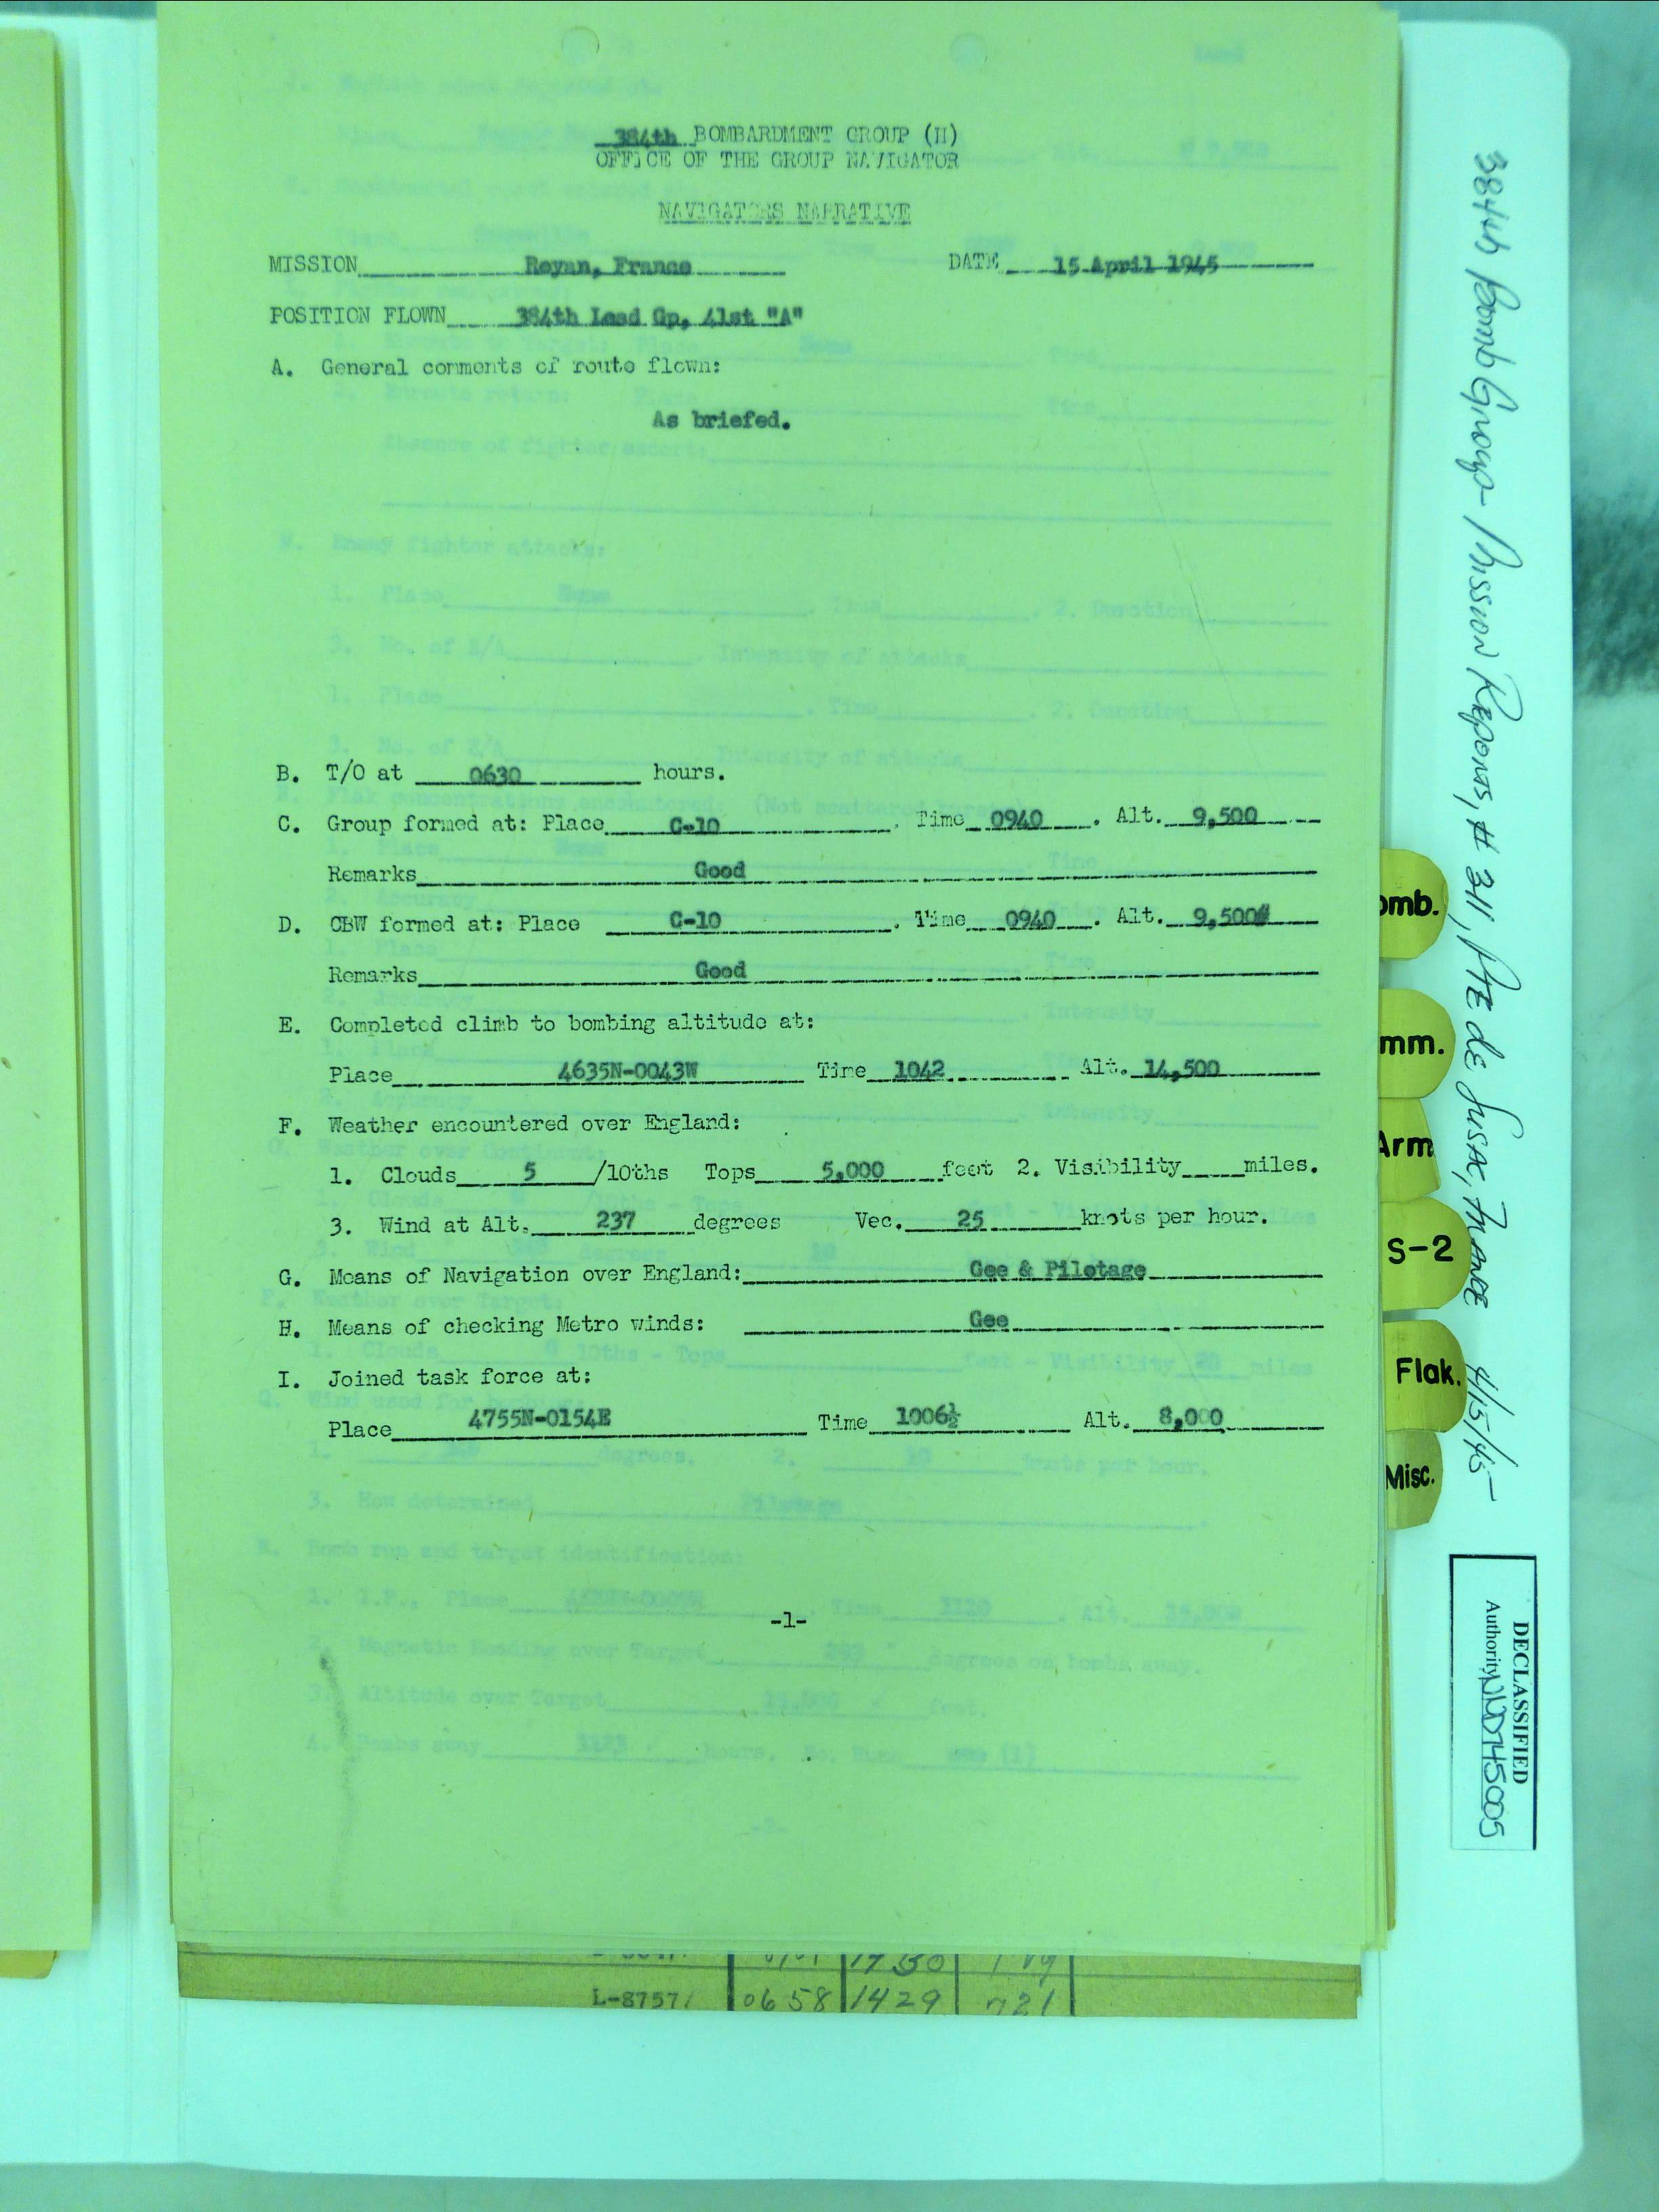 384th BOMBARDMENT GROUP (H)
OFFICE OF THE GROUP NAVIGATOR
NAVIGATORS NARRATIVE
MISSION Royan, France DATE 15 April 1945
POSITION FLOWN 384th Lead Gp, 41st "A"
A. General comments of route flown:
As briefed.
B. T/O at 0630 hours.
C. Group formed at: Place C-10. Time 0940. Alt. 9,500
Remarks Good
D. CBW formed at: Place C-10. Time 0940. Alt. 9,500
Remarks Good
E. Completed climb to bombing altitude at:
Place 4635N-0043W Time 1042 Alt. 14,500
F. Weather encountered over England:
1. Clouds 5 /10ths Tops 5,000 feet 2. Visibility miles.
3. Wind at Alt. 237 degrees Vec. 25 knots per hour.
G. Means of Navigation over England: Gee & Pilotage
H. Means of checking Metro winds: Gee
I. Joined task force at:
Place 4755N-0154E Time 1006½ Alt. 8,000
-1-
L-8757 0658 1429 721
omb.
mm.
Arm
S-2
Flak.
Misc.
384th Bomb Group - Mission Reports, # 311, Pte de Susac, France 4/15/45
DECLASSIFIED
Authority NND745005